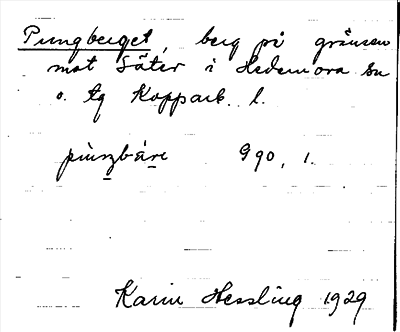 Pungberget, berg på gränsen
mot Säter i Hedemora sn
o. tg Kopparb. l.
G 90, 1.
Karin Hessling 1929